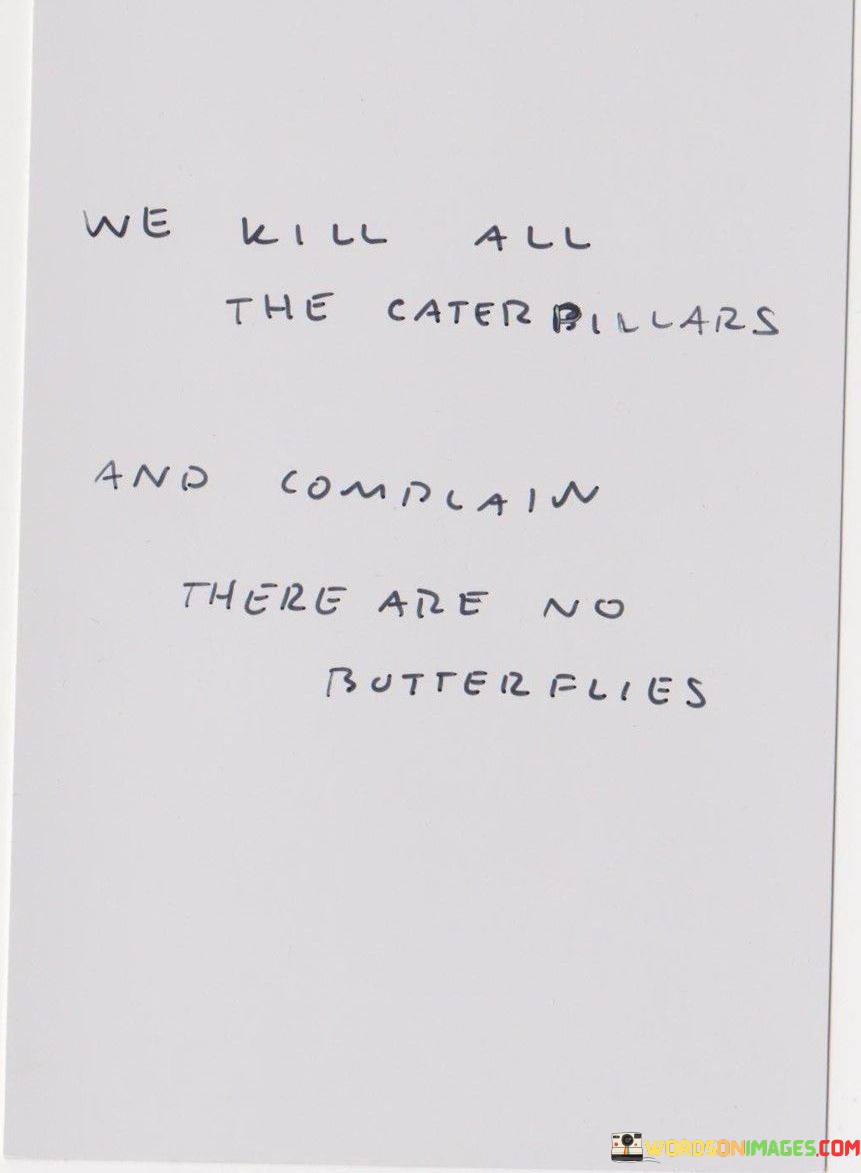 WE KILL ALL
THE CATERPILLARS
AND COMPLAIN
THERE ARE NO
BUTTERFLIES
WORDSONIMAGES.COM